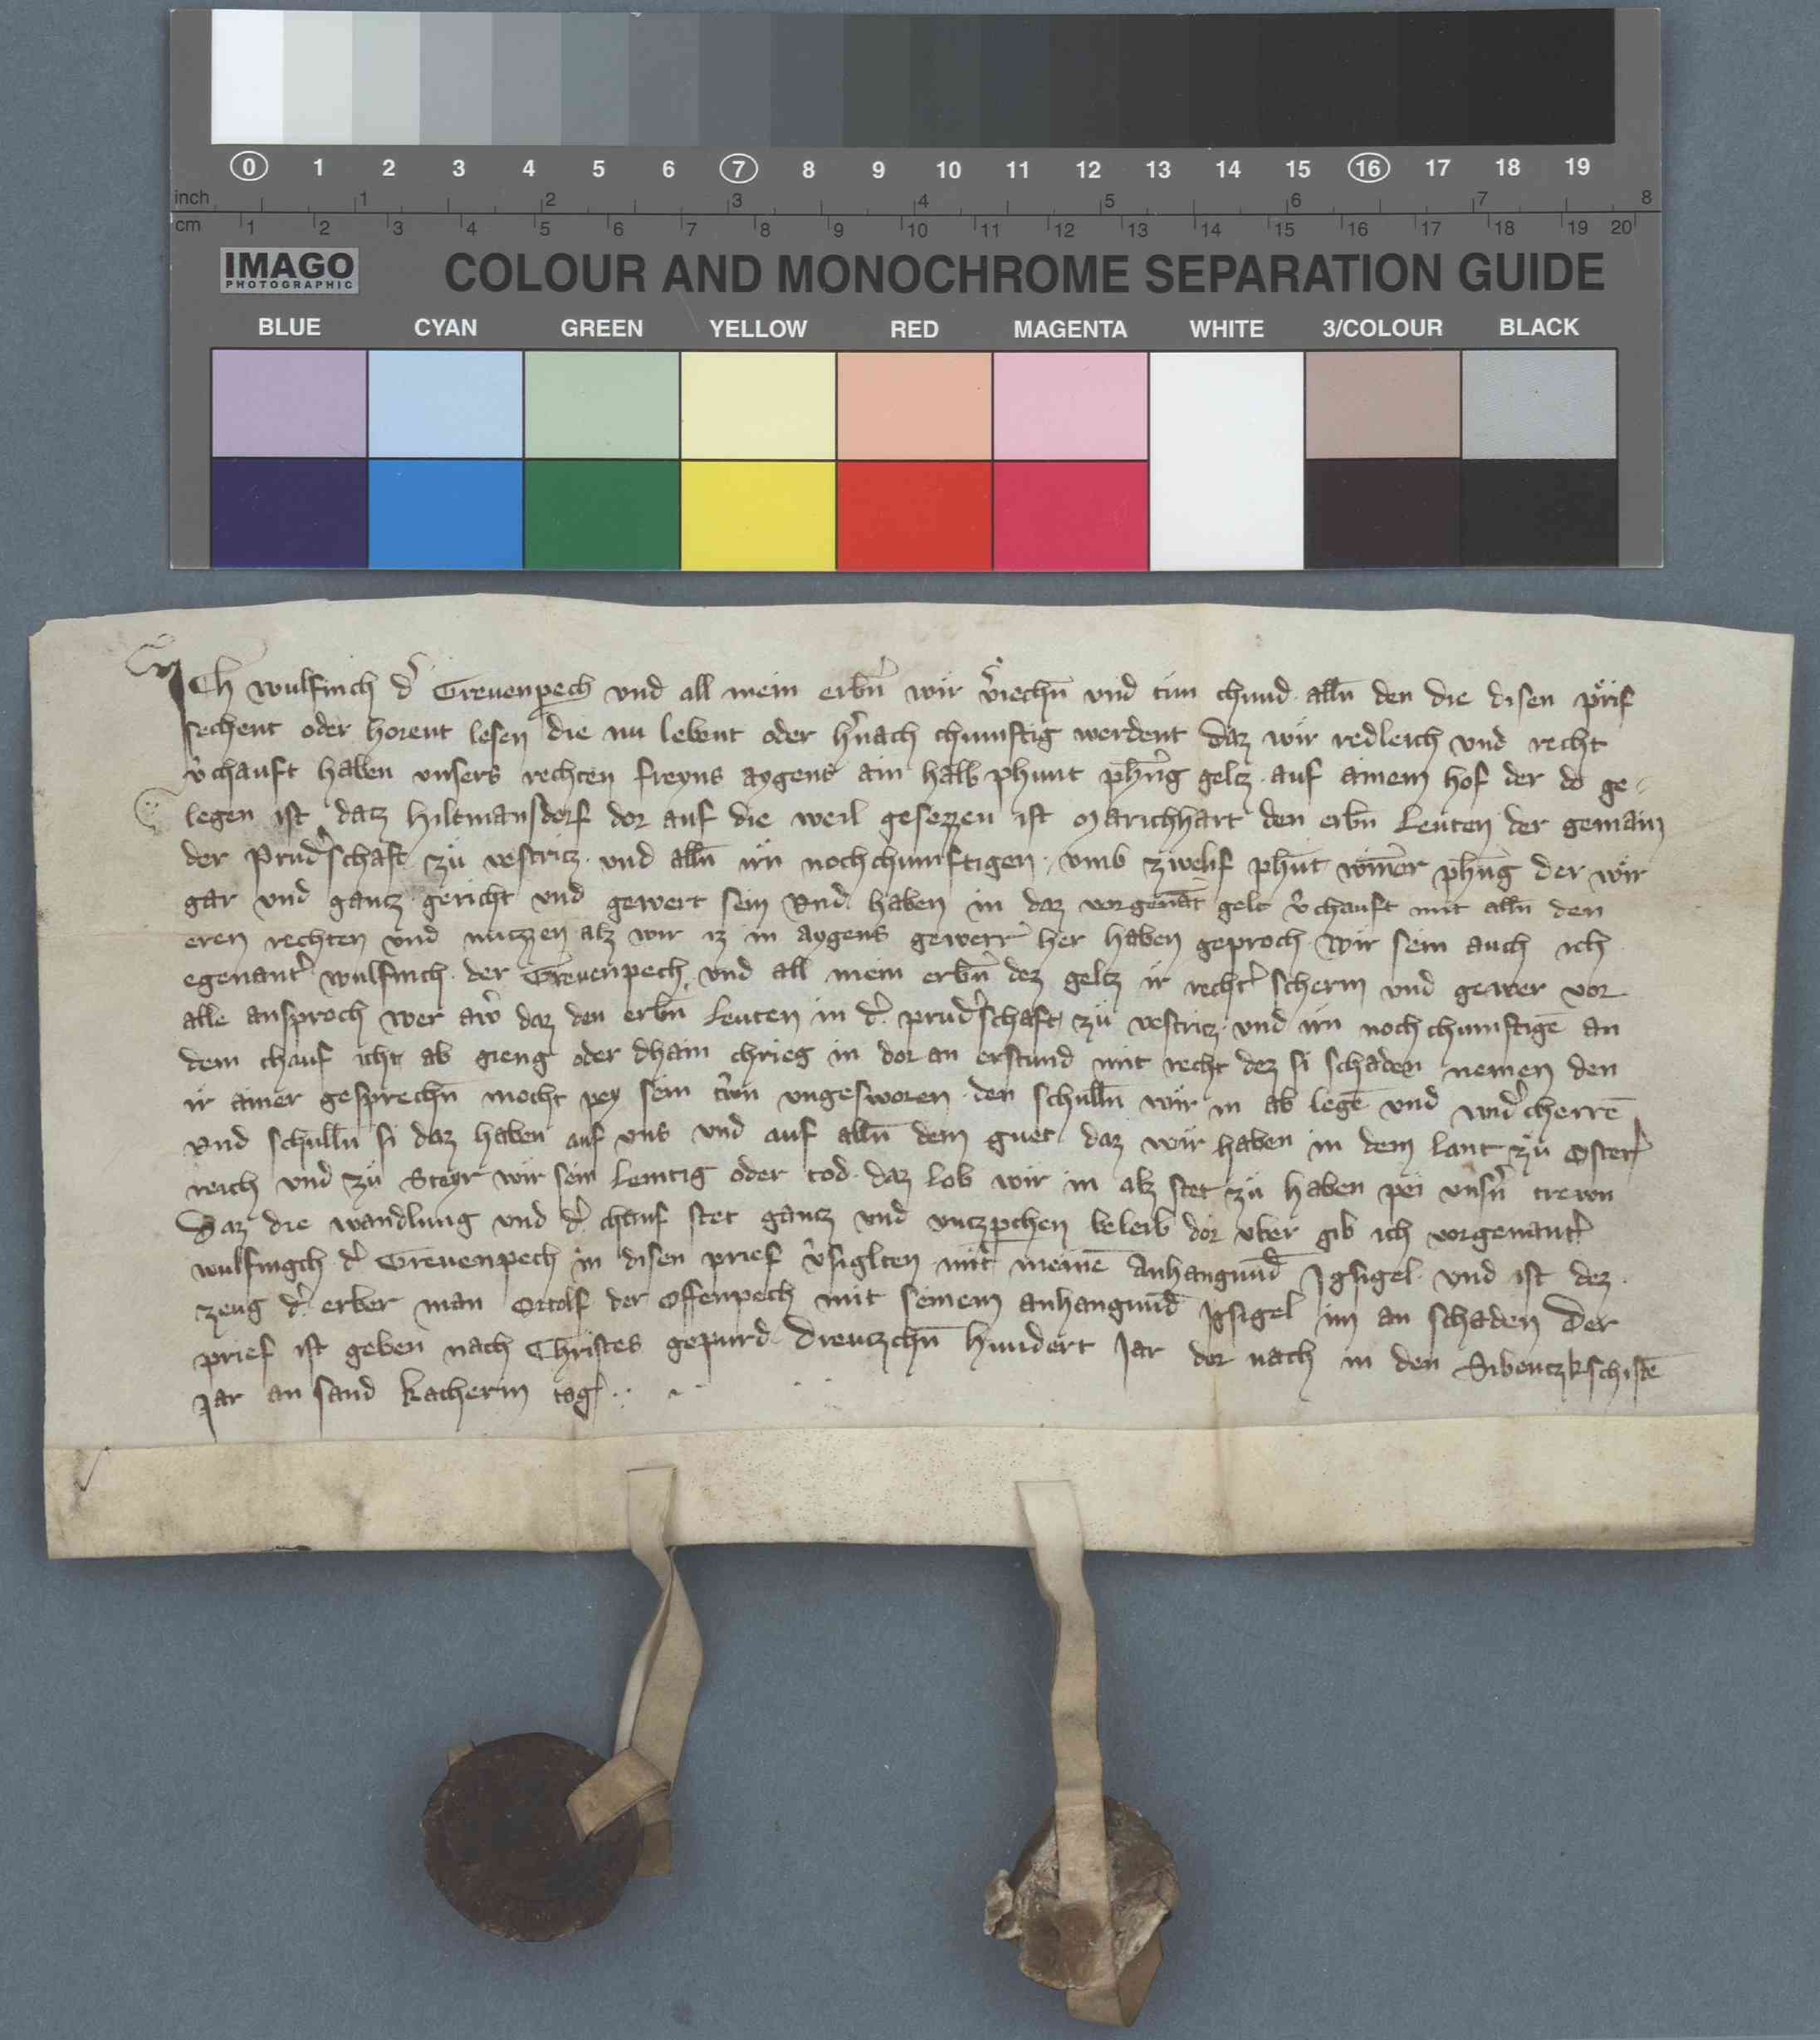 0 1 2 3 4 5 6 7 8 9 10 11 12 13 14 15 16 17 18 19
inch 1 2 3 4 5 6 7 8
cm 1 2 3 4 5 6 7 8 9 10 11 12 13 14 15 16 17 18 19 20
IMAGO
PHOTOGRAPHIC
COLOUR AND MONOCHROME SEPARATION GUIDE
BLUE CYAN GREEN YELLOW RED MAGENTA WHITE 3/COLOUR BLACK
Ich wulfinch d͛ Greuenpech vnd all mein erbn̄ wir v͛iechn̄ vnd tun chund alln̄ den die disen prif
sechent oder horent lesen die nu lebent oder h͛nach chumftig werdent daz wir redleich vnd recht
v͛chauft haben vnsers rechten freyns aygens ain halb phunt phn̄g geltz auf ainem hof der do ge-
legen ist datz hiltmansdorf dor auf die weil gesezzen ist Marichhart den erbn̄ Leuten der gemain
der prud͛schaft zu vestritz vnd alln̄ irn̄ nochchumftigen vmb zwelif phūt winn͛er phn̄g der wir
gar vnd gantz gericht vnd gewert sein vnd haben in daz vorgenāt gelt v͛chauft mit alln̄ den
eren rechten vnd nutzzen alz wir iz in aygens gewerr her haben geproch wir sein auch ich
egenant͛ wulfinch der Greuenpech vnd all mein erbn̄ dez geltz ir recht͛ scherm vnd gewer vor
alle ansproch wer aw͛ daz den erbn̄ Leuten in d͛ prud͛schaft zu vestritz vnd irn nochchumftigē an
dem chauf icht ab gieng oder dhain chrieg in dor an erstund mit recht dez si schaden nemen den
ir ainer gesprechn̄ mocht pey sein trw̄n vngesworen den schulln̄ wir in ab legē vnd wid͛cherrē
vnd schulln̄ si daz haben auf vns vnd auf alln̄ dem guet daz wir haben in dem lant zu Oster
reich vnd zu Steyr wir sein lemtig oder tod daz lob wir in alz stet zu haben pei vnsn̄ trewn
Daz die wandlung vnd d͛ chauf stet gantz vnd vntzpchen beleib dor vber gib ich vorgenant͛
wulfingch d͛ Greuenpech in disen prief v͛siglten mit meinē Anhangund Igsigel vnd ist dez
zeug d͛ erber man Ortolf der Offenpech mit seinem anhangund Igsigel im an schaden Der
prief ist geben nach Christes gepurd Dreutzchn̄ hundert Jar dor nach in den Sibentzkschistē
Jar an sand katherin tag